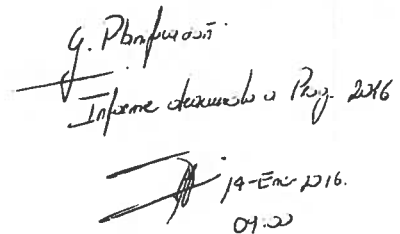 G. Planificación.
Informe avance a Prog. 2016
14-Ene-2016.
09:00